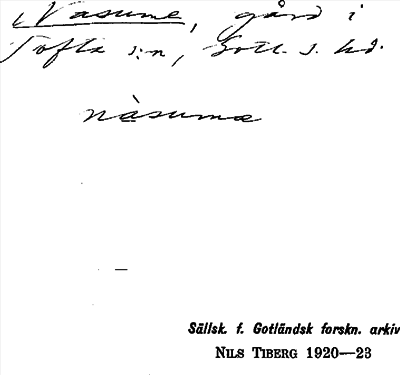 Nasume, gård i
Tofta s:n, Gotl. s. hd.
nàsumæ
Sällsk. f. Gotländsk forskn. arkiv
NILS TIBERG 1920—23